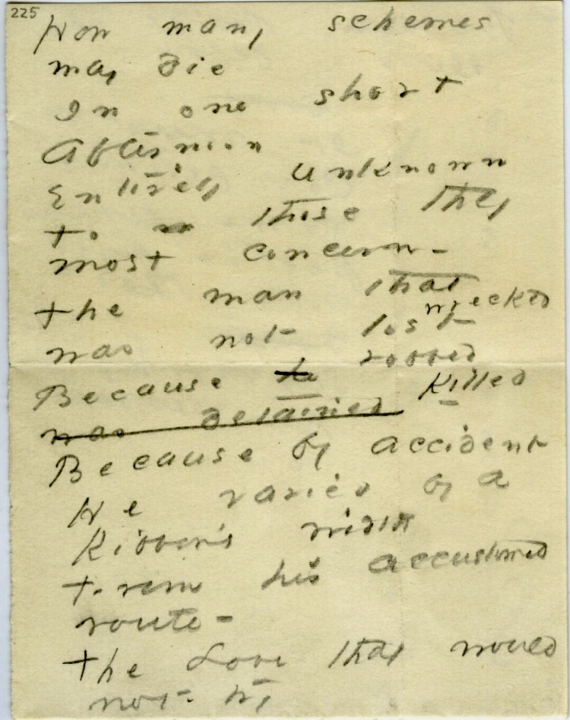 225
How many schemes
may die
In one short
Afternoon
Entirely unknown
to those they
most concern -
the man that
was not lost wrecked
Because he robbed
was detained killed
Because by accident
He varied by a
Ribbon's width
from his accustomed
route -
the Love that would
not try